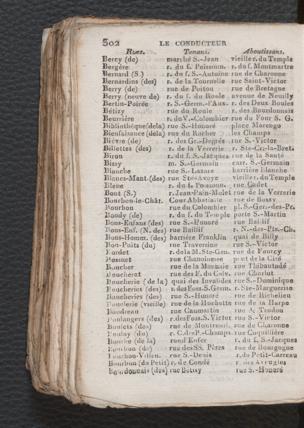 502 LE CONDUCTEUR
Rues. Tenans. Aboutissans.
Berry (de) marché S.-Jean vieille r. du Temple
Bergère r. du f. Poissonn. r. du f. Montmartre
Bernard (S.) r. du f. S.-Antoine rue de Charonne
Bernardins (des) r. de la Tournelle rue Saint-Victor
Berry (de) rue de Poitou rue de Bretagne
Berry (neuve de) r. du f. du Roule avenue de Neuilly
Bertin-Poirée r. S.-Germ.-l'Aux. r. des Deux Boules
Bétizy rue du Roule r. des Bourdonnois
Beurrière r. du V.-Colombier rue du Four S. G.
Bibliothèque(dela) rue S.-Honoré place Marengo
Bienfaisance (dela) rue du Rocher les Champs
Bièvre (de) r. des Gr.-Degrés rue S.-Victor
Billettes (des) r. de la Verrerie r. Ste-Cr.-la-Bret.
Biron r. du f. S.-Jacques rue de la Santé
Bissy m. S.-Germain carr. S.-Germain
Blanche rue S.-Lazare barrière blanche
Blancs-Mant.(des) rue Ste-Avoye vieille r. du Temple
Bleue r. du f. Poissonn. rue Cadet
Bont (S.) r. Jean-Pain-Molet rue de la Verrerie
Bourbon-le-Chât. Cour Abbatiale rue de Bussy
Bourbon rue du Colombier pl. S.-Ger.-des-Pr.
Bondy (de) r. du f. du Temple porte S.-Martin
Bons-Enfans (des) rue S.-Honoré rue Baillif
Bons-Enf. (N. des) rue Baillif r. N.-des-Ptts-Ch.
Bons-Homm. (des) barrière Franklin quai de Billy
Bon-Puits (du) rue Traversine rue S.-Victor
Bordet r. dela M. Ste-Gen. rue de Fourcy
rue Chanoinesse pont de la Cité
Boucher rue de la Monnaie rue Thibautodé
Boucherat rue des F. du Calv. rue Charlot
Boucherie (de la) quai des Invalides rue S.-Dominique
Boucheries (des) r. des Foss. S. Germ. r. Ste-Marguerite
Boucheries (des) rue S.-Honoré rue de Richelieu
Bouclerie (vieille) rue de la Huchette rue de la Harpe
Boudreau rue Caumartin rue de Trudon
Boulangers (des) r. des Foss. S. Victor rue S.-Victor
Boulets (des) rue de Montreuil rue de Charonne
Bouloy (du) r. C.-d.-P.-Champs rue Coquillière
Bourbe (de la) rue d'Enfer r. du f. S.-Jacques
Bourbon (de) rue des SS. Pères rue de Bourgogne
Bourbon-Villen. rue S.-Denis r. du Petit-Carreau
Bourbon (du Petit) r. de Condé r. des Aveugles
Bourdonnais (des) rue Bétisy rue S.-Honoré